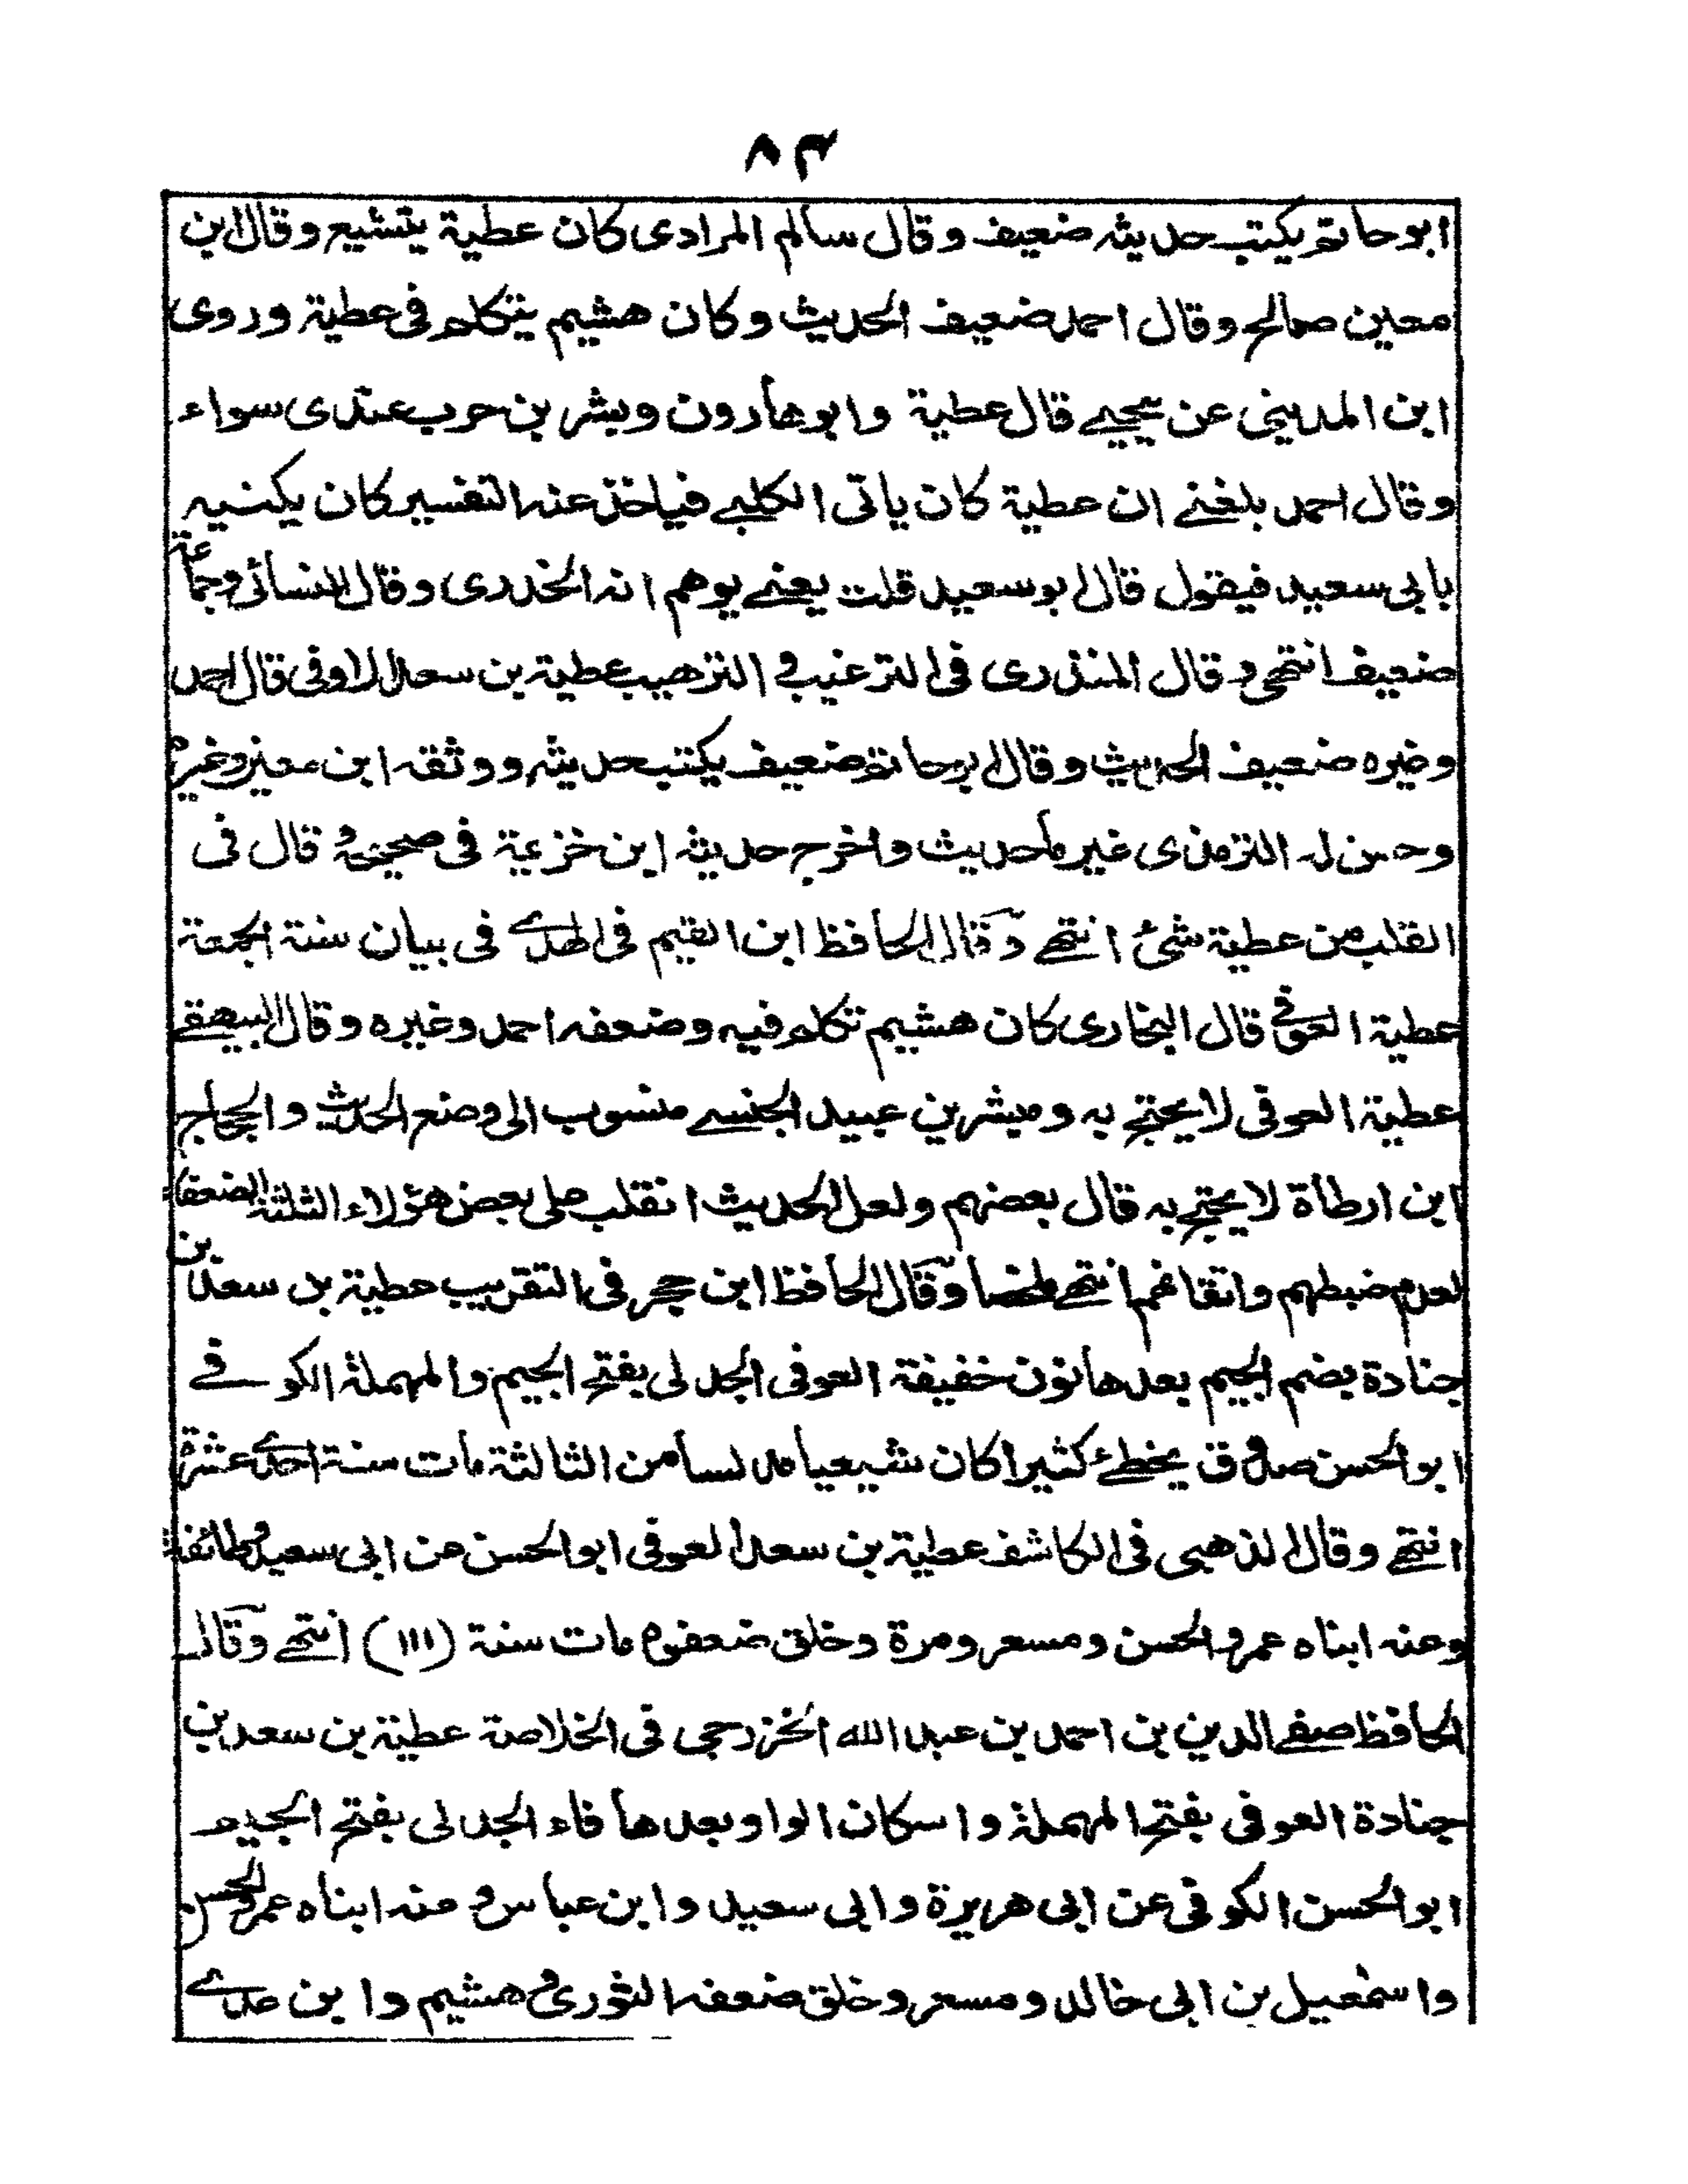 ٨٣
ابوحاتم يكتب حديثه ضعيف وقال سالم المرادى كان عطية يتشيع وقال ابن
معين صالح وقال احمد ضعيف الحديث وكان هشيم يتكلم فى عطية وروى
ابن المدينى عن يحيى قال عطية وابوهارون وبشر بن حرب عندى سواء
وقال احمد بلغنے ان عطية كان ياتى الكلبے فياخذ عنه التفسير كان يكنيه
بابى سعيد فيقول قال ابوسعيد قلت يعنے يوهم انه الخدرى وقال النسائى وجماعة
ضعيف انتهى وقال المنذرى فى الترغيب و الترهيب عطية بن سعد العوفى قال احمد
وغيره ضعيف الحديث وقال ابوحاتم ضعيف يكتب حديثه ووثقه ابن معين وغيره
وحسن له الترمذى غير ما حديث واخرج حديثه ابن خزيمة فى صحيحه و قال فى
القلب من عطية شئ انتهے وقال الحافظ ابن القيم فى الهدے فى بيان سنة الجمعة
عطية العوفے قال البخارى كان هشيم تكلم فيه وضعفه احمد وغيره وقال البيهقے
عطية العوفى لا يحتج به ومبشر بن عبيد الجنسے منسوب الى وضع الحديث والحجاج
ابن ارطاة لا يحتج به قال بعضهم ولعل الحديث انقلب على بعض هؤلاء الثلثة الضعفاء
لعدم ضبطهم واتقانهم انتهے ملخصا وقال الحافظ ابن حجر فى التقريب عطية بن سعد بن
جنادة بضم الجيم بعدها نون خفيفة العوفى الجدلى بفتح الجيم والمهملة الكوفے
ابو الحسن صدوق يخطئ كثيرا كان شيعيا مدلسا من الثالثة مات سنة احدے عشرة
انتهے وقال الذهبى فى الكاشف عطية بن سعد العوفى ابو الحسن عن ابى سعيد وطائفة
وعنه ابناه عمرو الحسن ومسعر ومرة وخلق ضعفوه مات سنة (١١١) انتهے وقال
الحافظ صفے الدين بن احمد بن عبد الله الخزرجى فى الخلاصة عطية بن سعد بن
جنادة العوفى بفتح المهملة واسكان الواو بعدها فاء الجدلى بفتح الجيم
ابو الحسن الكوفى عن ابى هريرة وابى سعيد وابن عباس و عنه ابناه عمرو الحسن
واسمعيل بن ابى خالد ومسعر وخلق ضعفه الثورى و هشيم وابن عدے